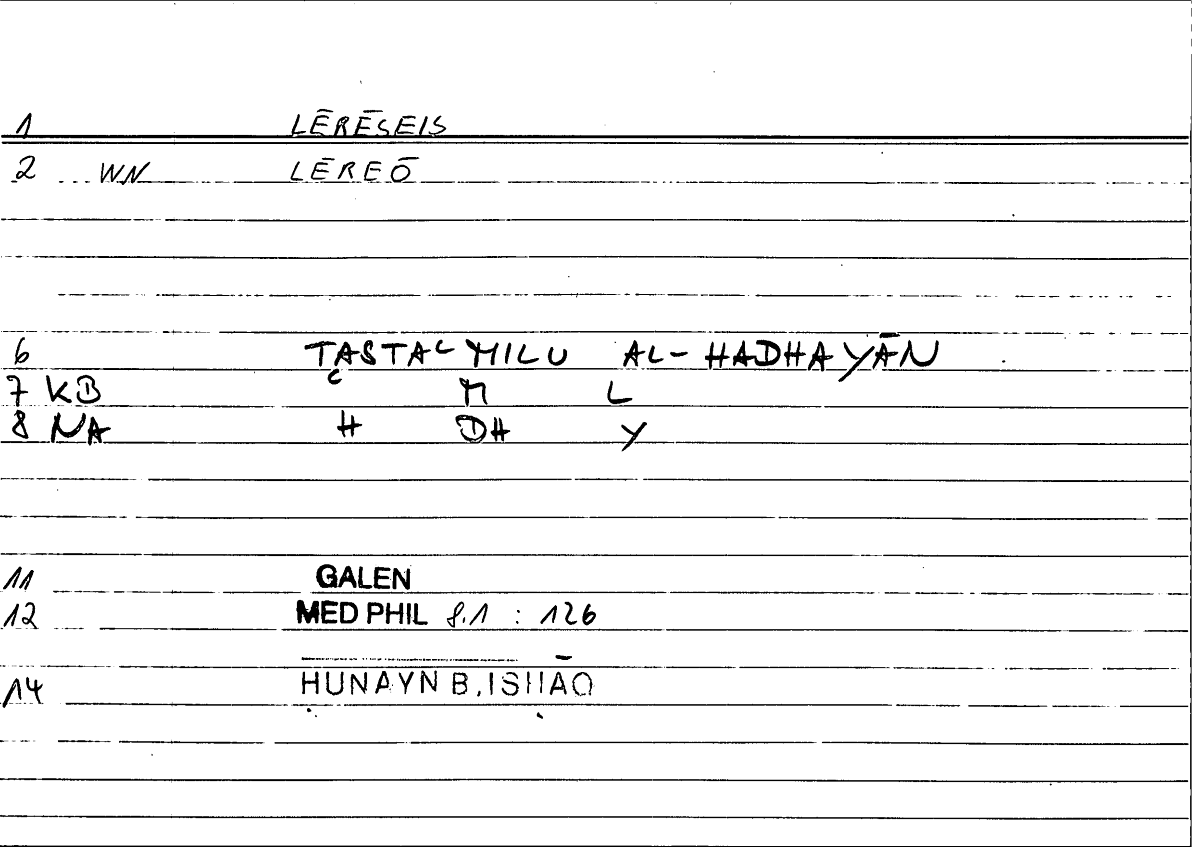 1 LĒRĒSEIS
2 WN LĒREŌ
6 TASTAʿMILU AL-HADHAYĀN
7 KB ʿ M L
8 NA H DH Y
11 GALEN
12 MED PHIL 8.1 : 126
14 ḤUNAYN B. ISḤĀQ